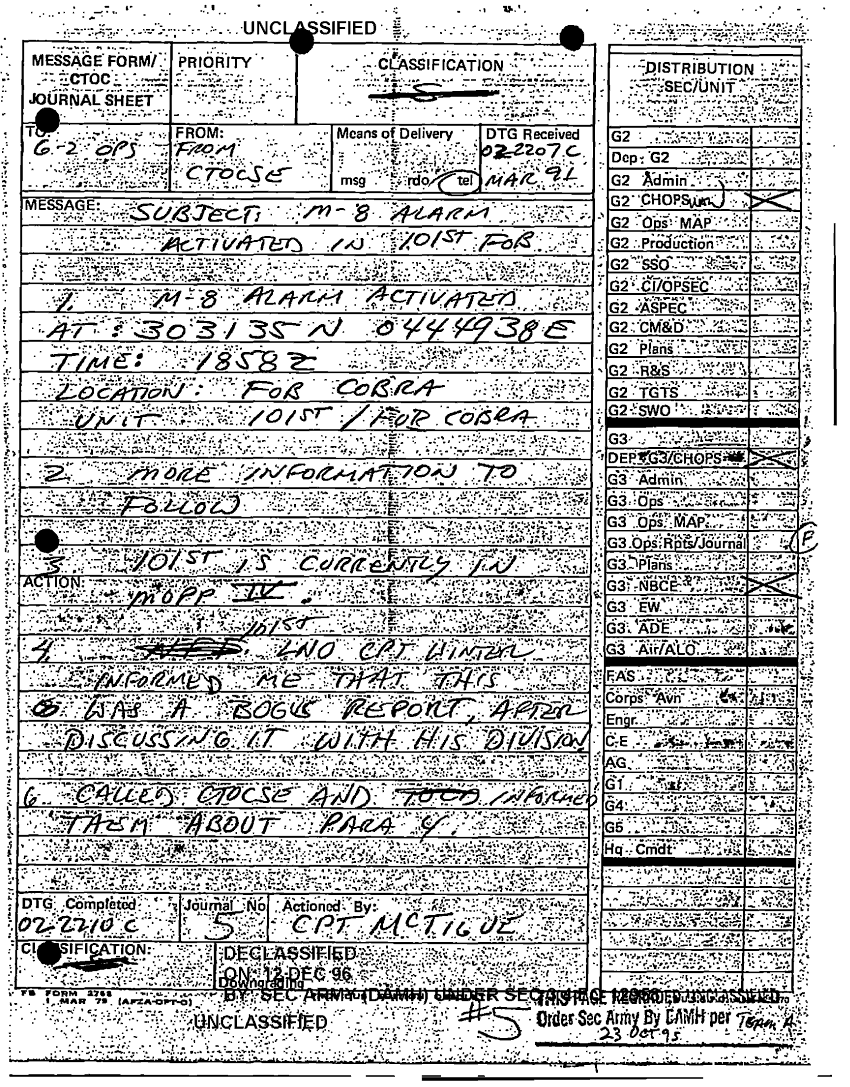 UNCLASSIFIED
MESSAGE FORM/
CTOC
JOURNAL SHEET
PRIORITY
CLASSIFICATION
TO:
G-2 OPS
FROM:
FROM
CTOCSE
Means of Delivery
msg rdo tel
DTG Received
022207C
MAR 91
MESSAGE:
SUBJECT: M-8 ALARM
ACTIVATED IN 101ST FOB
1. M-8 ALARM ACTIVATED
AT: 303135N 0444938E
TIME: 1858Z
LOCATION: FOB COBRA
UNIT 101ST / FOB COBRA
2 MORE INFORMATION TO
FOLLOW
3 101ST IS CURRENTLY IN
ACTION:
MOPP IV.
101ST
4. LNO CPT WINTER
INFORMED ME THAT THIS
WAS A BOGUS REPORT, AFTER
DISCUSSING IT WITH HIS DIVISION
6 CALLED CTOCSE AND INFORMED
THEM ABOUT PARA 4.
DTG Completed
02 2210 C
Journal No
5
Actioned By:
CPT McTIGUE
CLASSIFICATION:
DECLASSIFIED
ON 12 DEC 96
Downgrading
BY SEC ARMY (DAMH) UNDER SEC
FB FORM 2768
MAR 79 (AFZA-DPT-O)
UNCLASSIFIED
#5
Order Sec Army By DAMH per Team A
23 OCT 95
DISTRIBUTION
SEC/UNIT
G2
Dep: G2
G2 Admin
G2 CHOPS
G2 Ops MAP
G2 Production
G2 SSO
G2 CI/OPSEC
G2 ASPEC
G2 CM&D
G2 Plans
G2 R&S
G2 TGTS
G2 SWO
G3
DEP G3/CHOPS
G3 Admin
G3 Ops
G3 Ops MAP
G3 Ops Rpts/Journal
G3 Plans
G3 NBCE
G3 EW
G3 ADE
G3 Air/ALO
FAS
Corps Avn
Engr
C-E
AG
G1
G4
G5
Hq Cmdt